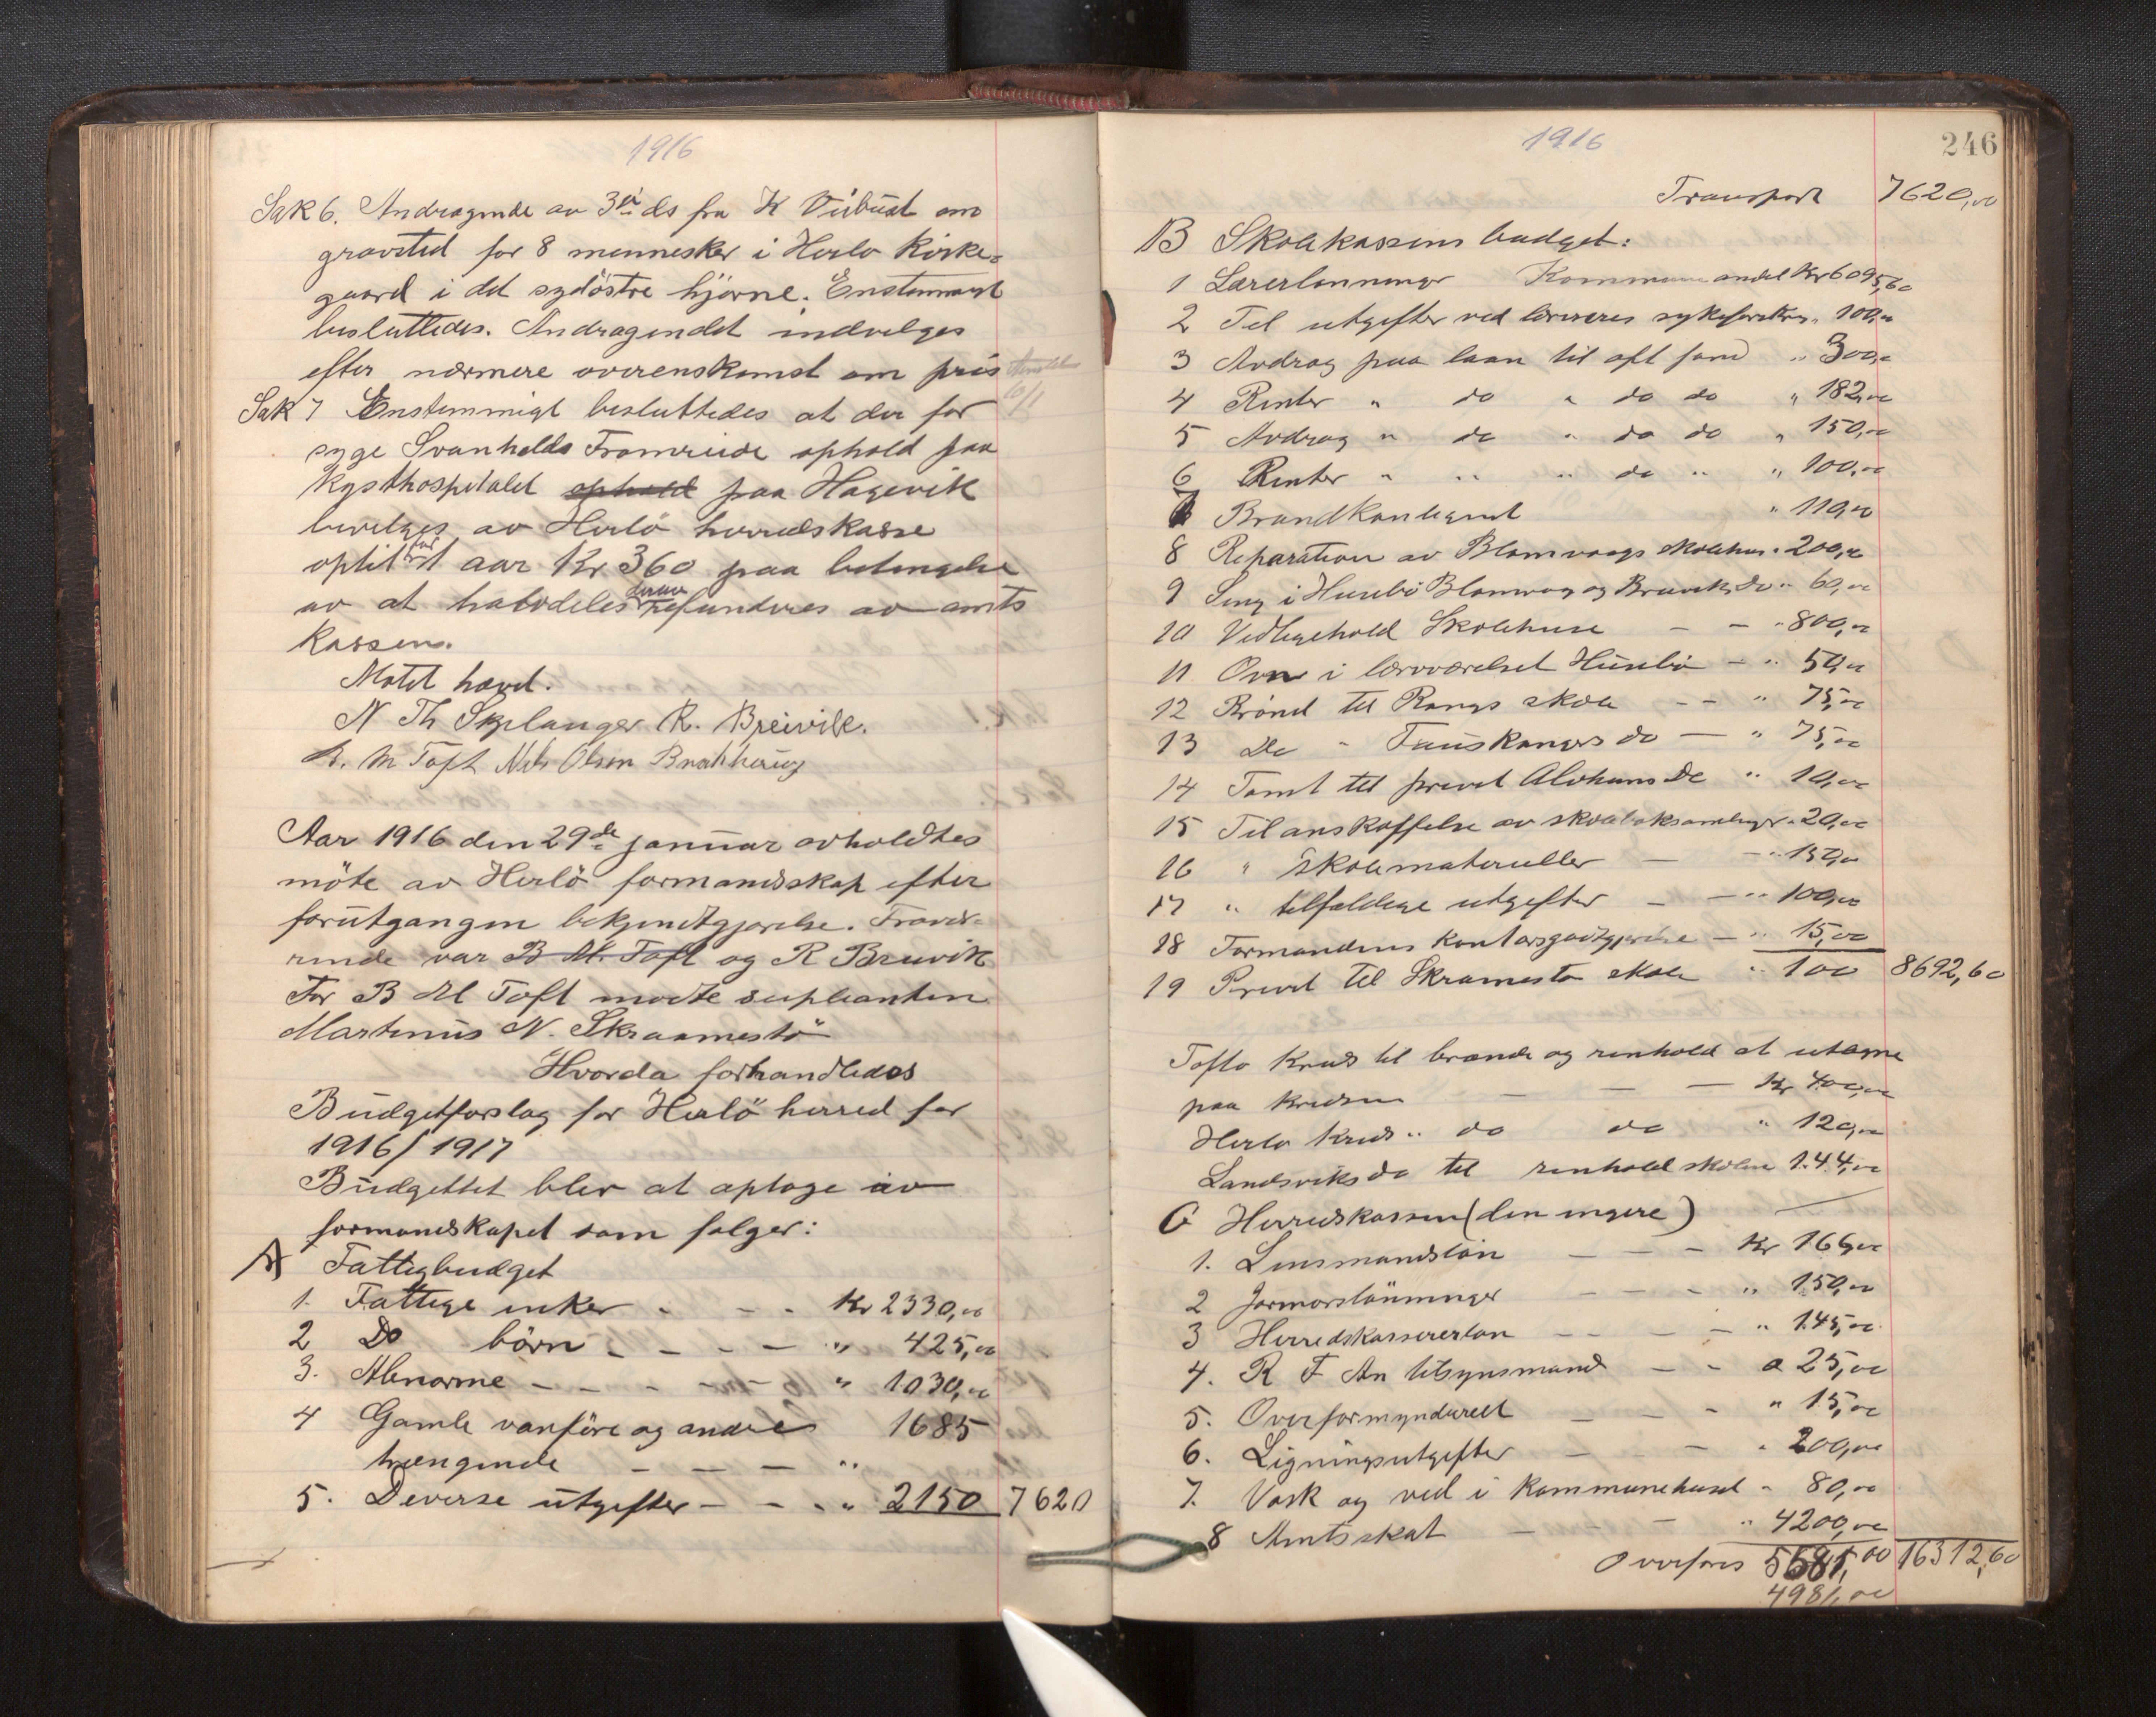 1916
Sak 6. Andragende av 3die ds fra K Viibust om
gravsted for 8 mennesker i Herlo Kirke=
gaard i det sydöstre hjörne. Enstemmigt
besluttedes. Andragendet indvelges
efter nærmere overenskomst om pris
Sak 7 Enstemmigt besluttedes at der for
syge Svanhelds Fromreide ophold paa
Kysthospitalet ophold paa Hagevik
bevelges av Herlö herredskasse
optil for 1 aar Kr 360 paa betingelse
av at halvdeles derav refunderes av amts
Kassen.
Mötet hævd.
N Th Sæplanger R. Breivik.
B. M Toft Nils Olsen
Aar 1916 den 29de januar avholdtes
möte av Herlö formandskap efter
forutgangen bekjendtgjorelse. Fraver=
rende var B M. Toft og R Breivik
For B M Toft modte supleanten
Martinus N. Skraamestö
Hvorda forhandledes
Budgetforslag for Herlö herred for
1916/1917
Budgettet blev at optage av
formandskapet som folger:
A Fattigbudget
1. Fattige enker - - - Kr 2330,00
2 Do börn - - - - " 425,00
3. Abnorme - - - - - " 1030,00
4 Gamle vanföre og andre 1685
trængende - - - "
5. Deverse utgefter - - - " 2150 7620
1916
246
Transport 7620,00
B Skolekassens budget:
1 Lærerlonninger Kommuneandel Kr 6095,60
2 Til utgifter ved læreres sykeforetkr. " 100,00
3 Avdrag paa laan til oft fond " 300,00
4 Renter " do " do do " 182,00
5 Avdrag " do " do do " 150,00
6 Renter " " " do " " 100,00
7 Brandkontegent " 110,00
8 Reparation av Blomvaags skolehus " 200,00
9 Seng i Husebö Blomvag og Breviks Do " 60,00
10 Vedlegehold Skolehuse - - " 800,00
11 Ovn i lærvværelset Husebö - " 50,00
12 Brönd til Rongs skole - - " 75,00
13 Do " Fauskangers do - " 75,00
14 Tomt til prevet Alvheims Do " 10,00
15 Til anskaffelse av skoleboksamlinger " 20,00
16 " skolematerieller - - " 150,00
17 " tilfældige utgifter - - " 100,00
18 Formandens kontorsgodtgjorelse - " 15,00
19 Prevet til Skramestö skole " 100 8692,60
Tofto Kreds til brænde og renhold at utligne
paa kredsen - - - Kr 400,00
Herlo Kreds " do do " 120,00
Landsviks do til renhold skolen 144,00
C Herredskassen (den engere)
1. Lensmandslön - - - Kr 166,00
2 Jormorslönninger - - - " 150,00
3 Herredskassererlon - - - - " 145,00
4. R F An tilsynsmand - - a 25,00
5. Overformynderiet - - - " 15,00
6. Ligningsutgifter - - - " 200,00
7. Vask og ved i kommunehuset " 80,00
8 Amtsskat - - " 4200,00
Overfores 5681,00 16312,60
4981,00